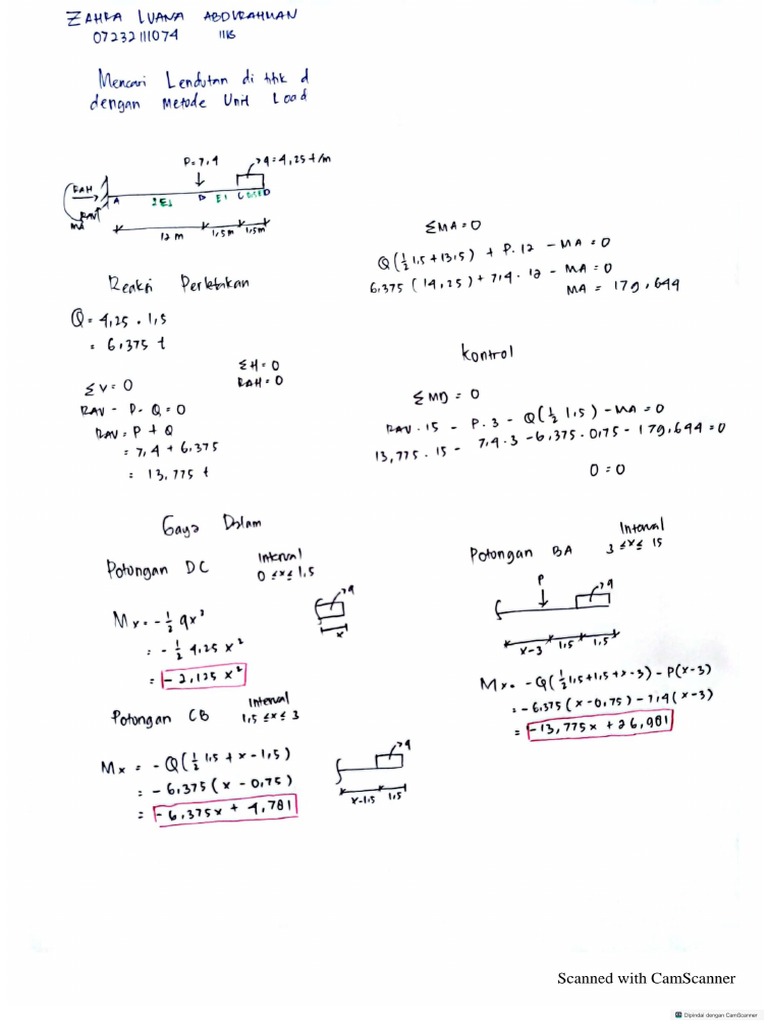 ZAHRA LUANA ABDURAHMAN
07232111074
Mencari Lendutan di titik d
dengan Metode Unit Load
P=7,4
q=4,25 t/m
RAH
RAV
MA
A
2EI
B
EI
C
D
12 m
1,5m
1,5m
Reaksi Perletakan
Q = 4,25 . 1,5
= 6,375 t
ΣV = 0
RAV - P - Q = 0
RAV = P + Q
= 7,4 + 6,375
= 13,775 t
ΣH = 0
RAH = 0
ΣMA = 0
Q(1/2 1,5 + 13,5) + P. 12 - MA = 0
6,375 (14,25) + 7,4 . 12 - MA = 0
MA = 179,644
Kontrol
ΣMD = 0
RAV . 15 - P . 3 - Q(1/2 1,5) - MA = 0
13,775 . 15 - 7,4 . 3 - 6,375 . 0,75 - 179,644 = 0
0 = 0
Gaya Dalam
Potongan DC
Interval
0 ≤ x ≤ 1,5
Mx = - 1/2 qx²
= - 1/2 4,25 x²
= - 2,125 x²
q
x
Potongan CB
Interval
1,5 ≤ x ≤ 3
Mx = - Q(1/2 1,5 + x - 1,5)
= - 6,375 (x - 0,75)
= - 6,375x + 4,781
q
x-1,5
1,5
Potongan BA
Interval
3 ≤ x ≤ 15
P
q
x-3
1,5
1,5
Mx = - Q(1/2 1,5 + 1,5 + x - 3) - P(x-3)
= - 6,375 (x - 0,75) - 7,4 (x-3)
= - 13,775x + 26,981
Scanned with CamScanner
Dipindai dengan CamScanner